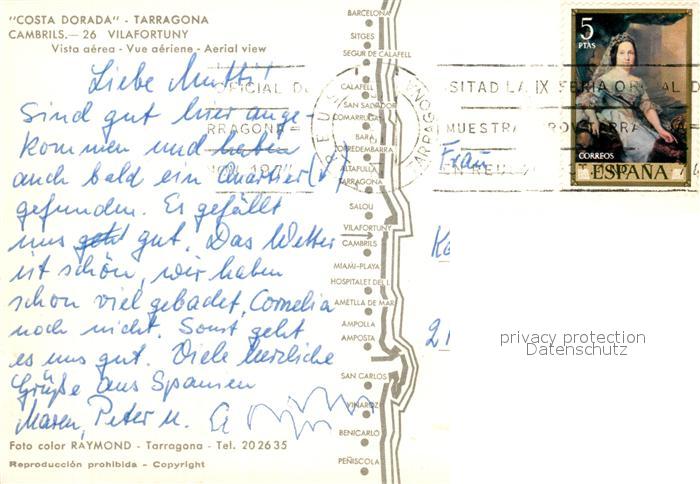 "COSTA DORADA" - TARRAGONA
CAMBRILS.— 26 VILAFORTUNY
Vista aérea - Vue aériene - Aerial view
Liebe Mutti!
Sind gut hier ange-
kommen und haben
auch bald ein Quartier (v)
gefunden. Es gefällt
uns geht gut. Das Wetter
ist schön, wir haben
schon viel gebadet, Cornelia
noch nicht. Sonst geht
es uns gut. Viele herzliche
Grüße aus Spanien
Maren, Peter u. C
Foto color RAYMOND - Tarragona - Tel. 202635
Reproducción prohibida - Copyright
BARCELONA
SITGES
SEGUR DE CALAFELL
CALAFELL
SAN SALVADOR
COMARRUGA
BARA
TORREDEMBARRA
ALTAFULLA
TARRAGONA
SALOU
VILAFORTUNY
CAMBRILS
MIAMI-PLAYA
HOSPITALET DEL I.
AMETLLA DE MAR
AMPOLLA
AMPOSTA
SAN CARLOS
VINAROZ
BENICARLO
PEÑISCOLA
TARRAGONA
SITAD LA IX FERIA OFICIAL D
MUESTRA
Frau
5
PTAS
CORREOS
ESPAÑA
privacy protection
Datenschutz